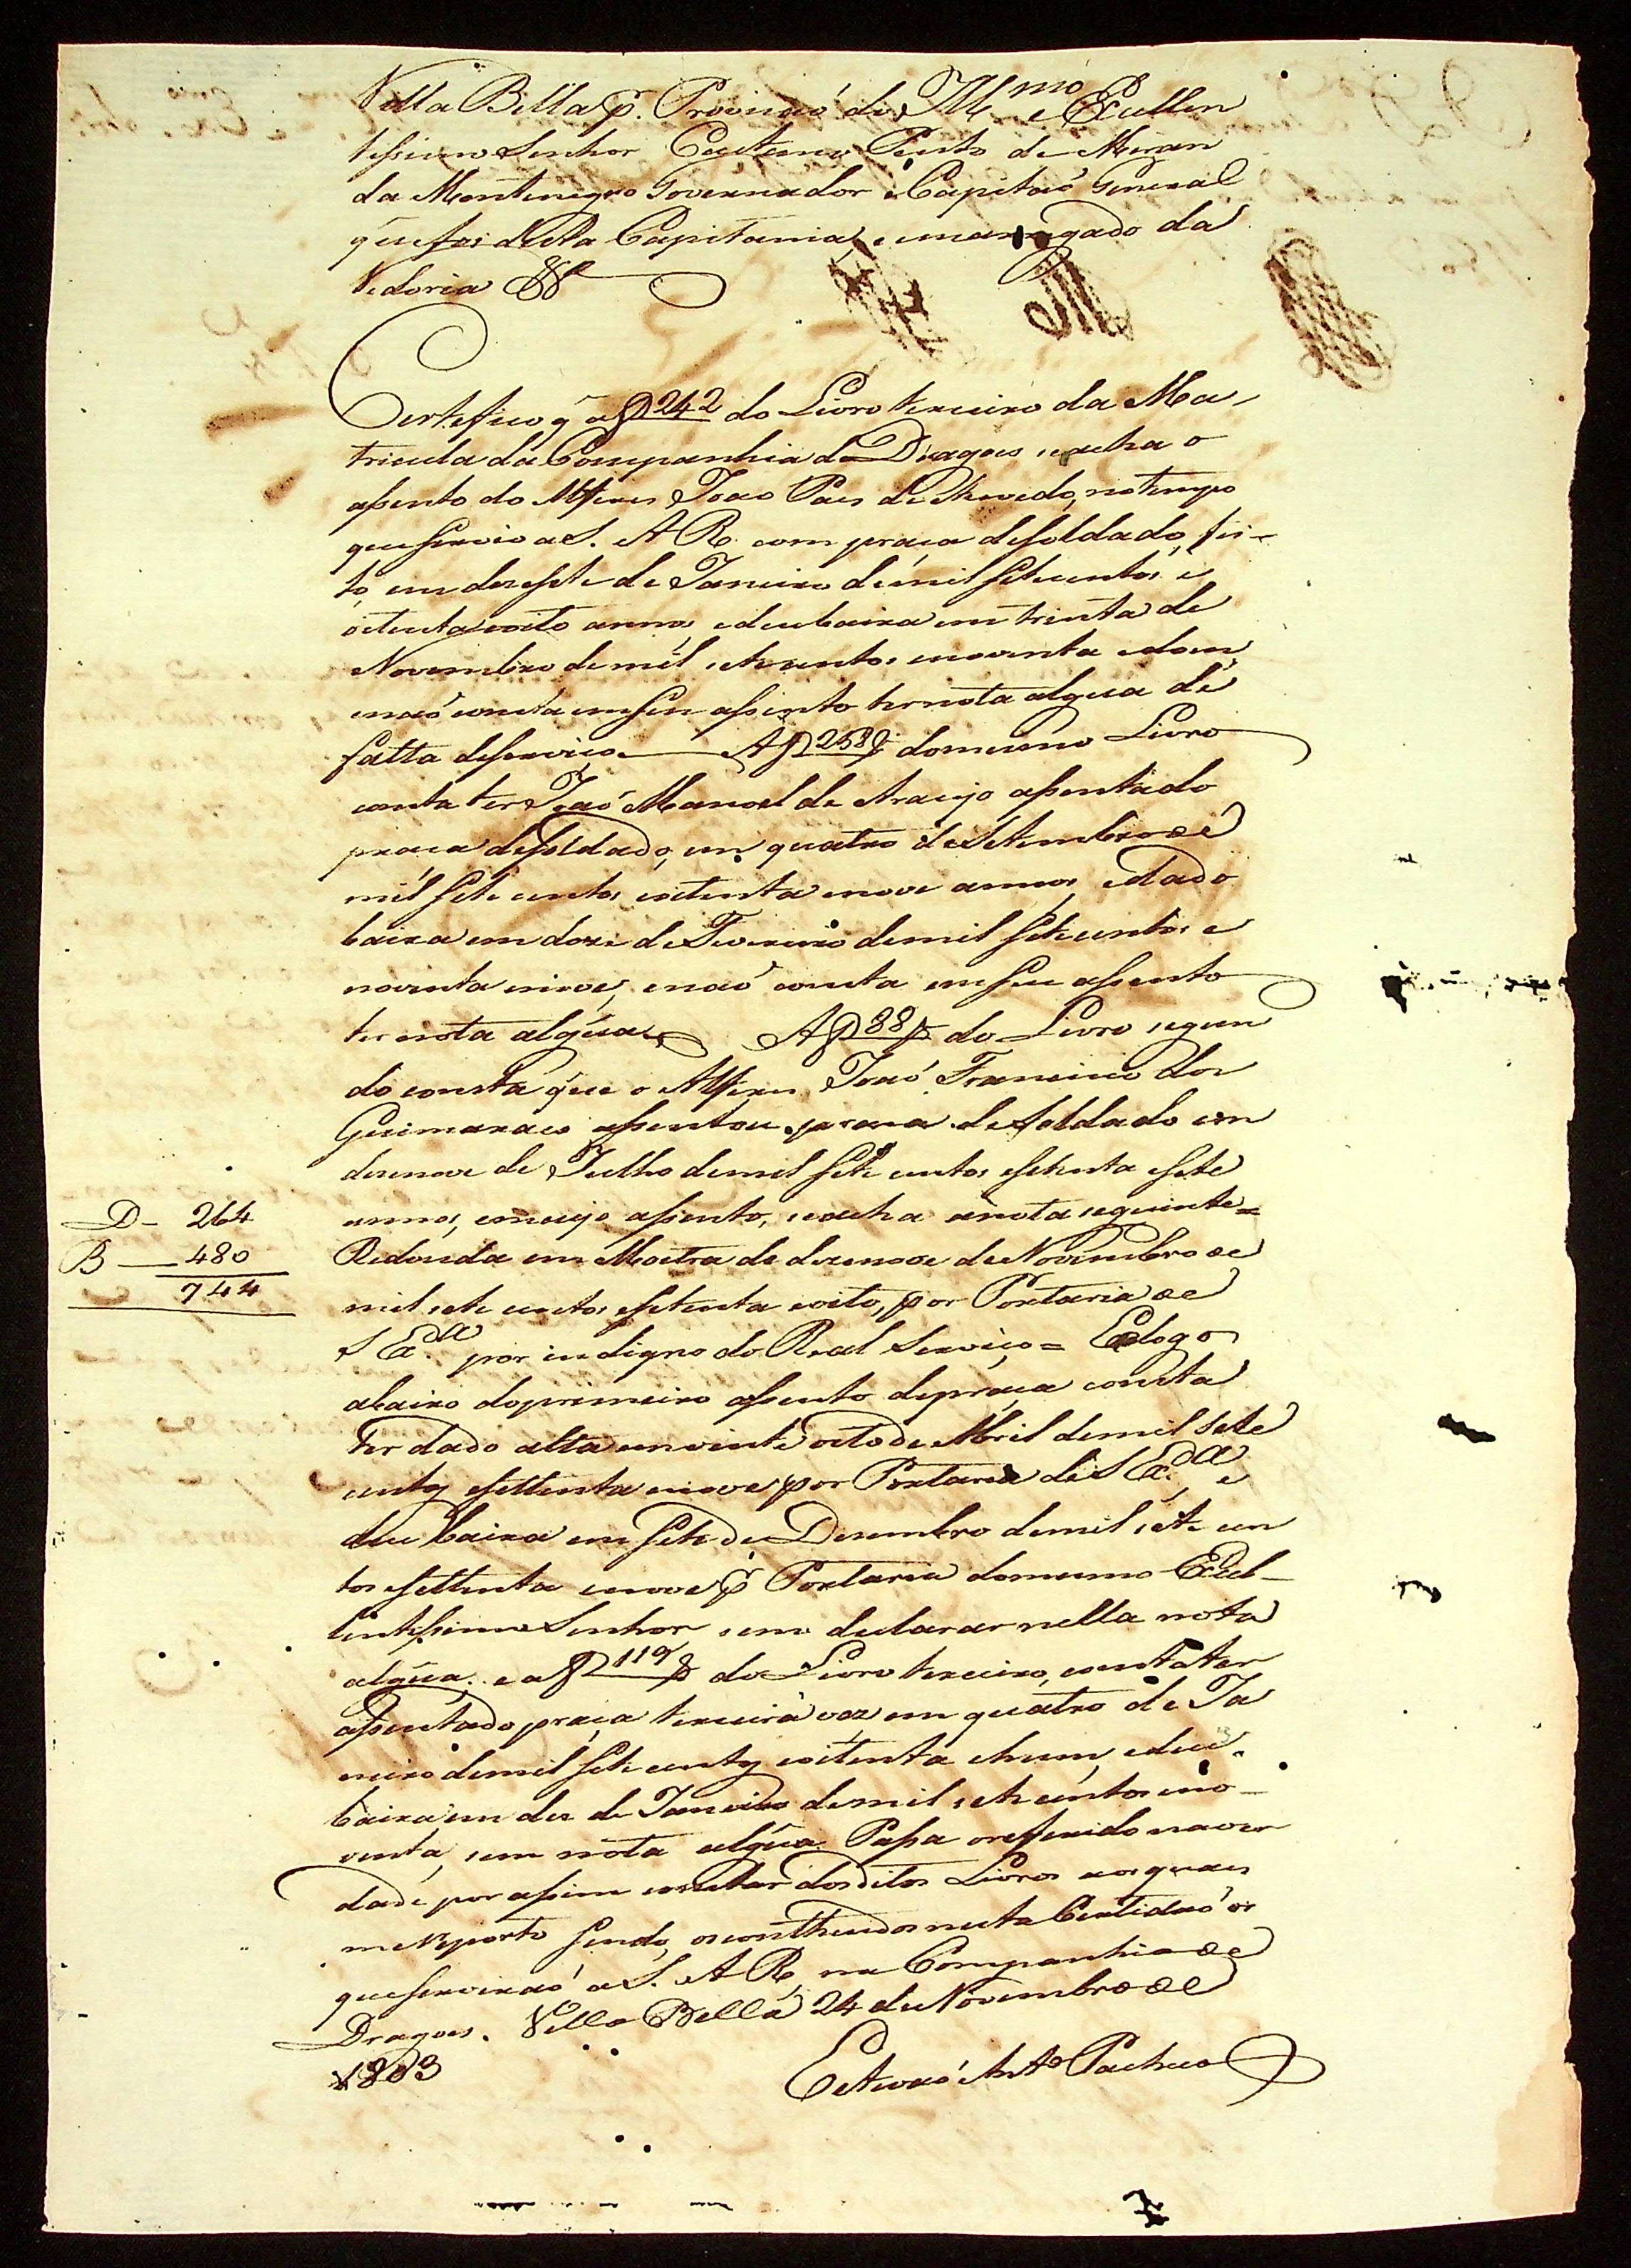 Villa Bella p. Provimaõ do Illmo e Excellen
tissimo Senhor Caetano Pinto de Miran
da Montenegro Governador e Capitaõ General
que foi desta Capitania, e encarregado da
Vedoria &&ª
Certefico q̃ a f 242 do Livro terceiro da Ma-
tricula da Companhia de Dragoes se acha o
assento do Alferes Joao Paes de Azevedo, no tempo
que servio a S. A R. com praça de soldado, fei-
to em desesete de Janeiro de mil sete centos e
oitenta e oito annos e deu baixa em trinta de
Novembro de mil setecentos e noventa e dous
e naõ consta em seu assento ter nota algua de
falta de serviço A f 258 do mesmo Livro
consta ter Joaõ Manoel de Araujo assentado
praça de soldado, em quatro de Setembro de
mil sete centos e oitenta e nove annos, e dado
baixa em doze de Fevereiro de mil sete centos e
noventa e nove, e naõ consta em seu assento
ter nota algũa A f 88 do Livro segun
do consta que o Alferes Joaõ Francisco dos
Guimaraes assentou praça de soldado em
desenove de Julho de mil sete centos e setenta e sete
annos, em cujo assento, se acha a nota seguinte =
Redonda em Mostra de dezenove de Novembro de
mil sete centos e setenta e oito, por Portaria de
S Exª por indigno do Real Serviço = E logo
abaixo do primeiro assento de praça consta
ter dado alta em vinte oito de Abril de mil sete
centos e settenta e nove por Portaria de S Exª e
deu baixa em sete de Desembro de mil sete cen
tos e settenta e nove p Portaria do mesmo Excel-
lentissimo Senhor sem declarar nella nota
algũa. e a f 119 do Livro terceiro, consta ter
assentado praça terceira vez em quatro de Ja
neiro de mil sete centos e oitenta e hum, e deu
baixa em des de Janeiro de mil setecentos e no-
venta, sem nota algũa. Passa o referido na ver
dade por assim constar dos ditos Livros aos quaes
me reporto sendo, os contheudos nesta Certidaõ os
que serviraõ a S. A R, na Companhia de
Dragoes. Villa Bella 24 de Novembro de
1803
Estevaõ Antº Pacheco
D - 264
B - 480
744